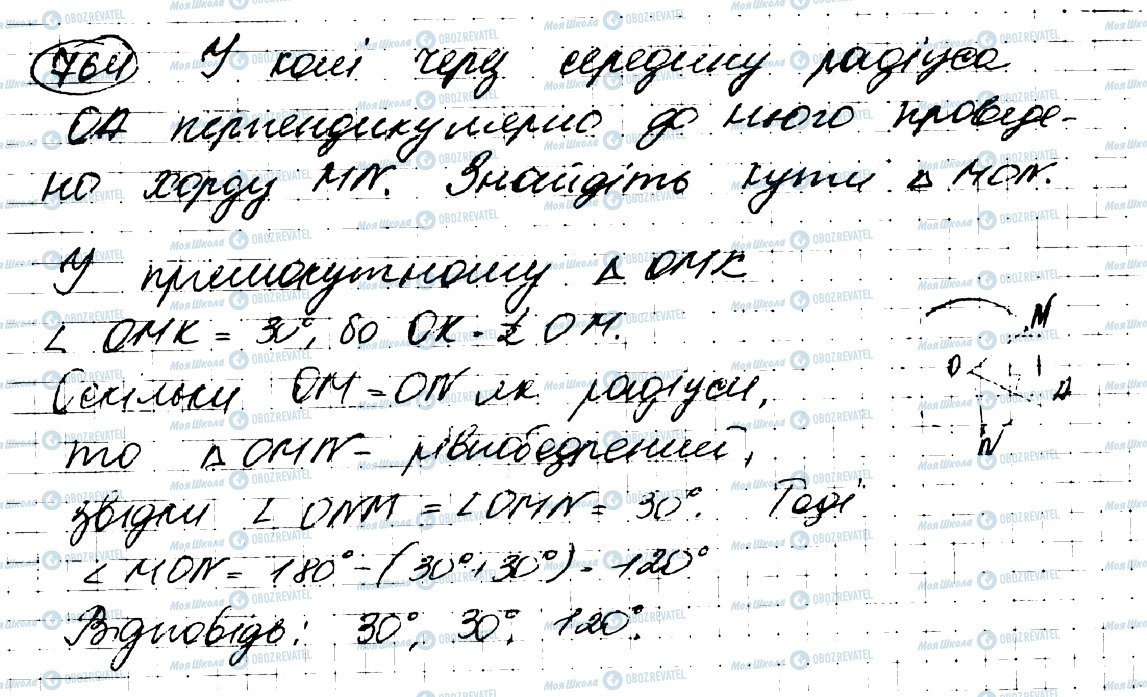 764 У колі через середину радіуса
ОА перпендикулярно до нього проведе-
но хорду MN. Знайдіть кути △ MON.
У прямокутному △ OMK
∠ OMK = 30°, бо OK = ½ OM.
Оскільки OM = ON як радіуси,
то △ OMN - рівнобедрений,
звідки ∠ ONM = ∠ OMN = 30°. Тоді
∠ MON = 180° - (30° + 30°) = 120°
Відповідь: 30°, 30°, 120°.
M
O
A
N
Моя Школа OBOZREVATEL